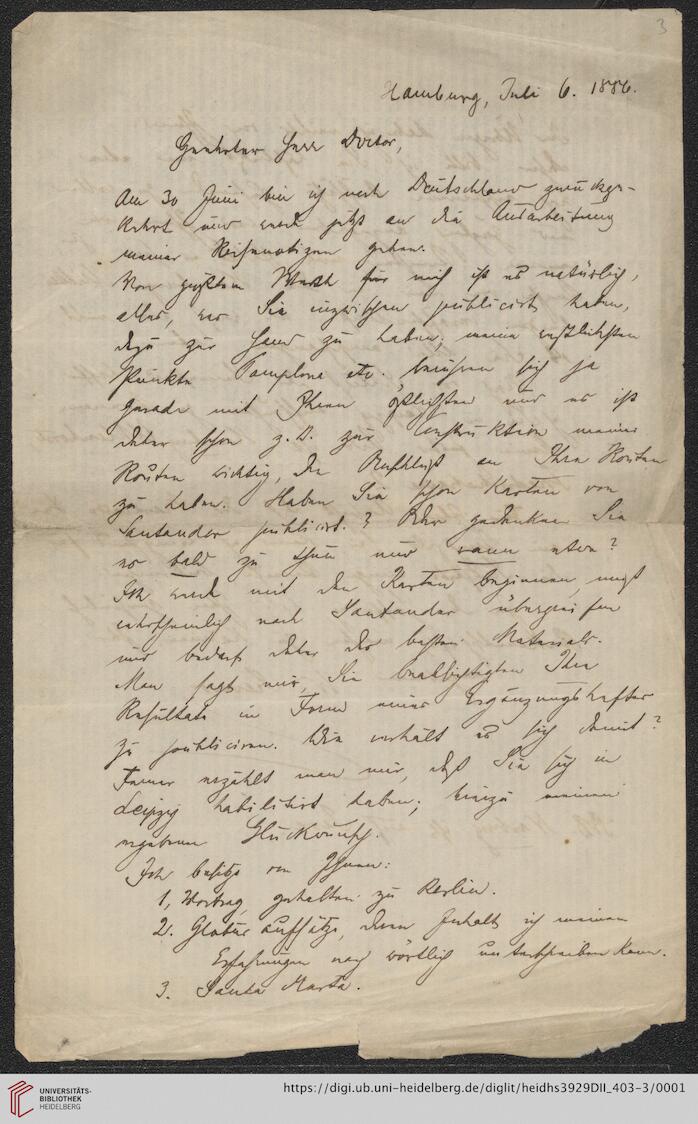 3
Hamburg, Juli 6. 1886.
Geehrter Herr Doctor,
Am 30 Juni bin ich nach Deutschland zurückge-
kehrt und werde jetzt an die Ausarbeitung
meiner Reisenotizen gehen.
Von größtem Werth für mich ist es natürlich,
alles, was Sie inzwischen publicirt haben,
dazu zur Hand zu haben; meine westlichsten
Punkte Pamplona etc. berühren sich ja
gerade mit Ihren östlichsten und es ist
daher schon z. B. zur Construktion meiner
Routen wichtig, den Anschluß an Ihre Routen
zu haben. Haben Sie schon Karten von
Santander publicirt.? Oder gedenken Sie
es bald zu thun und wann etwa?
Ich werde mit den Karten beginnen, muß
wahrscheinlich nach Santander übergreifen
und bedarf daher des besten Materials.
Man sagt mir, Sie beabsichtigten Ihre
Resultate in Form eines Ergänzungsheftes
zu publiciren. Wie verhält es sich damit?
Ferner erzählt man mir, daß Sie sich in
Leipzig habilitirt haben; hierzu meinen
ergebenen Glückwunsch.
Ich besitze von Ihnen:
1, Vortrag, gehalten zu Berlin.
2. Globus aufsätze, deren Inhalt ich meinen
Erfahrungen nach wörtlich unterschreiben kann.
3. Santa Marta.
UNIVERSITÄTS-
BIBLIOTHEK
HEIDELBERG
https://digi.ub.uni-heidelberg.de/diglit/heidhs3929DII_403-3/0001